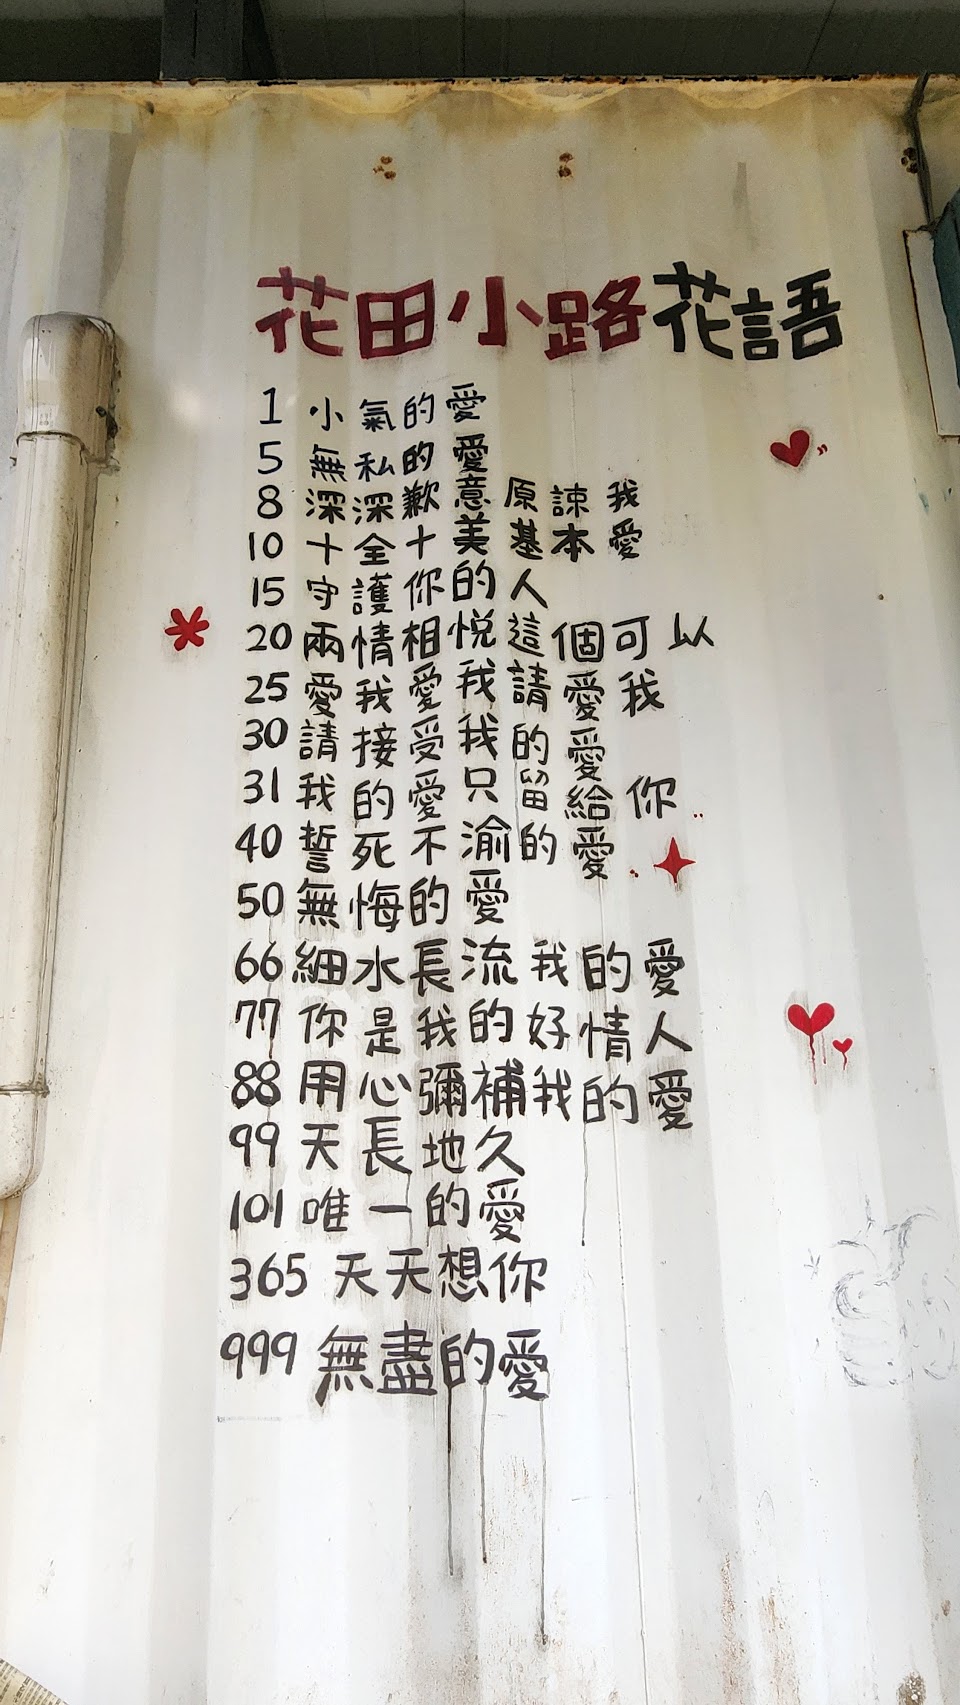 花田小路花語
1 小氣的愛
5 無私的愛
8 深深歉意原諒我
10 十全十美基本愛
15 守護你的人
20 兩情相悅這個可以
25 愛我愛我請愛我
30 請接受我的愛
31 我的愛只留給你
40 誓死不渝的愛
50 無悔的愛
66 細水長流我的愛
77 你是我的好情人
88 用心彌補我的愛
99 天長地久
101 唯一的愛
365 天天想你
999 無盡的愛